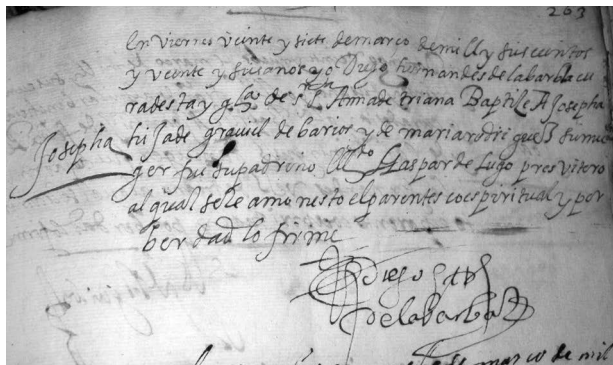 203
En viernes veinte y siete de março de mill y seiscientos
y veinte y seis anos yo Diego fernandes de la barba cu
ra desta ygª de sª Ana de triana Baptise A Josepha
Josepha
hija de graviel de barios y de maria rodrigues su mu
ger fue su padrino el Gaspar de Lugo presvitero
al qual se le amonesto el parentesco espiritual y por
berdad lo firme
Diego
de la barba
março de mil